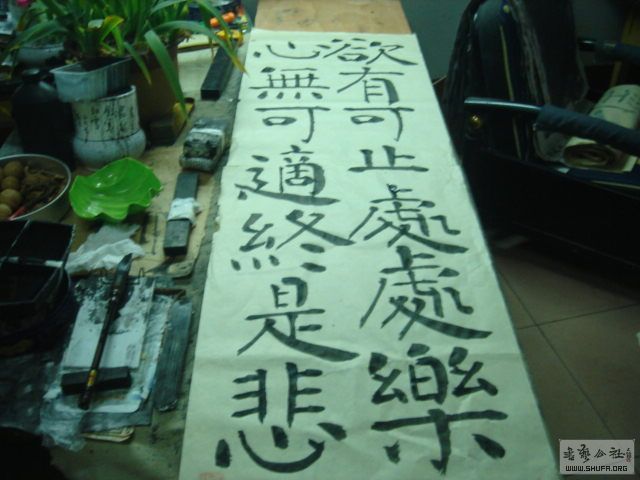 欲有可止處處樂
心無可適終是悲
書藝公社
WWW.SHUFA.ORG